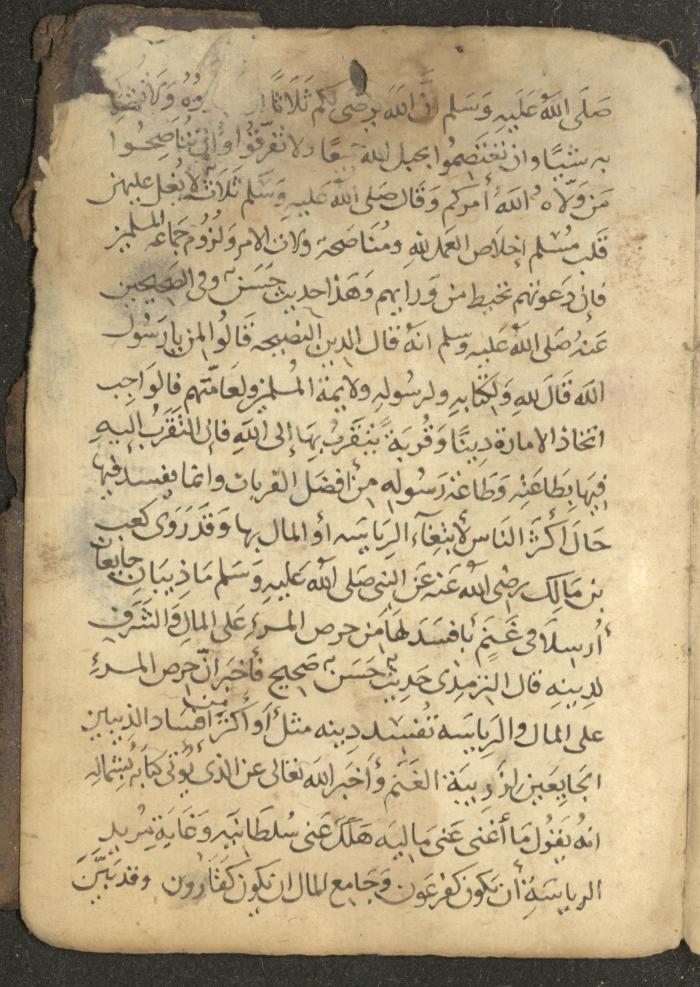 صَلَى اللهُ عَلَيهِ وَسَلم انَّ اللهَ يرضَى لكم ثَلَاثًا ان وُهُ وَلا تُشركوا
به شيًا وان تعتَصموا بحبل الله جميعًا ولا تَفرّقوا وأن تُناصِحُوا
مَن وَلّاهُ اللهُ أمركم وَقَال صَلى اللهُ عَليهِ وَسَلم ثَلَاث لا يُغل عليهن
قَلبُ مُسْلم إخلَاص العَمل للهِ ومُنَاصَحة ولاة الامر وَلزُوم جَمَاعة المسلمين
فإن دَعوتهم تحيط من وَرايهم وَهَذا حديث حَسَن وفي الصَحيحين
عَنهُ صَلى اللهُ عَليه وسلم انهُ قال الدين النصيحه قَالُوا لمن يا رَسُول
الله قَالَ للهِ وَلكتَابهِ ولرسُولهِ ولايمة المُسلمين ولعَامّتهم فالوَاجب
اتخاذ الامارة دِينًا وَقُربَةً يتقَرّبُ بِهَا إلى اللهِ فان التقَرُبَ إليهِ
فِيهَا بِطَاعَتِه وطَاعَة رَسُوله مِن أفضَل القربات وانما يفسد فيها
حَال أكثر النَاس لابتغَاء الرياسَه أو المال بها وَقَد رَوَى كَعب
بن مَالِك رضى اللهُ عَنهُ عَن النبي صَلى اللهُ عَليهِ وَسَلم مَا ذيبَان جايعَان
أُرسلَا في غَنَمٍ بأفسَدَ لهَا مِن حرص المرءِ عَلى المالِ وَالشَرَفِ
لدِينهِ قال الترمذى حَديثٌ حَسَن صَحيح فأخبَر انّ حِرص المرءِ
على المال والرِيَاسَه تُفسد دِينه مثل أو أكثر من افسَاد الذيبَين
الجَايعَين لزَرِيبَة الغَنَم وَأخبَر الله تعَالى عن الذى يُوتى كتَابَه بشِمالهِ
انهُ يَقُول مَا أغنى عَنى مَاليه هَلَكَ عَنى سُلطَانيه وَغَايَة مُريد
الرياسَةِ أن يَكون كفرعَون وَجَامع المال ان يكون كقَارون وقد بَيَّنَ